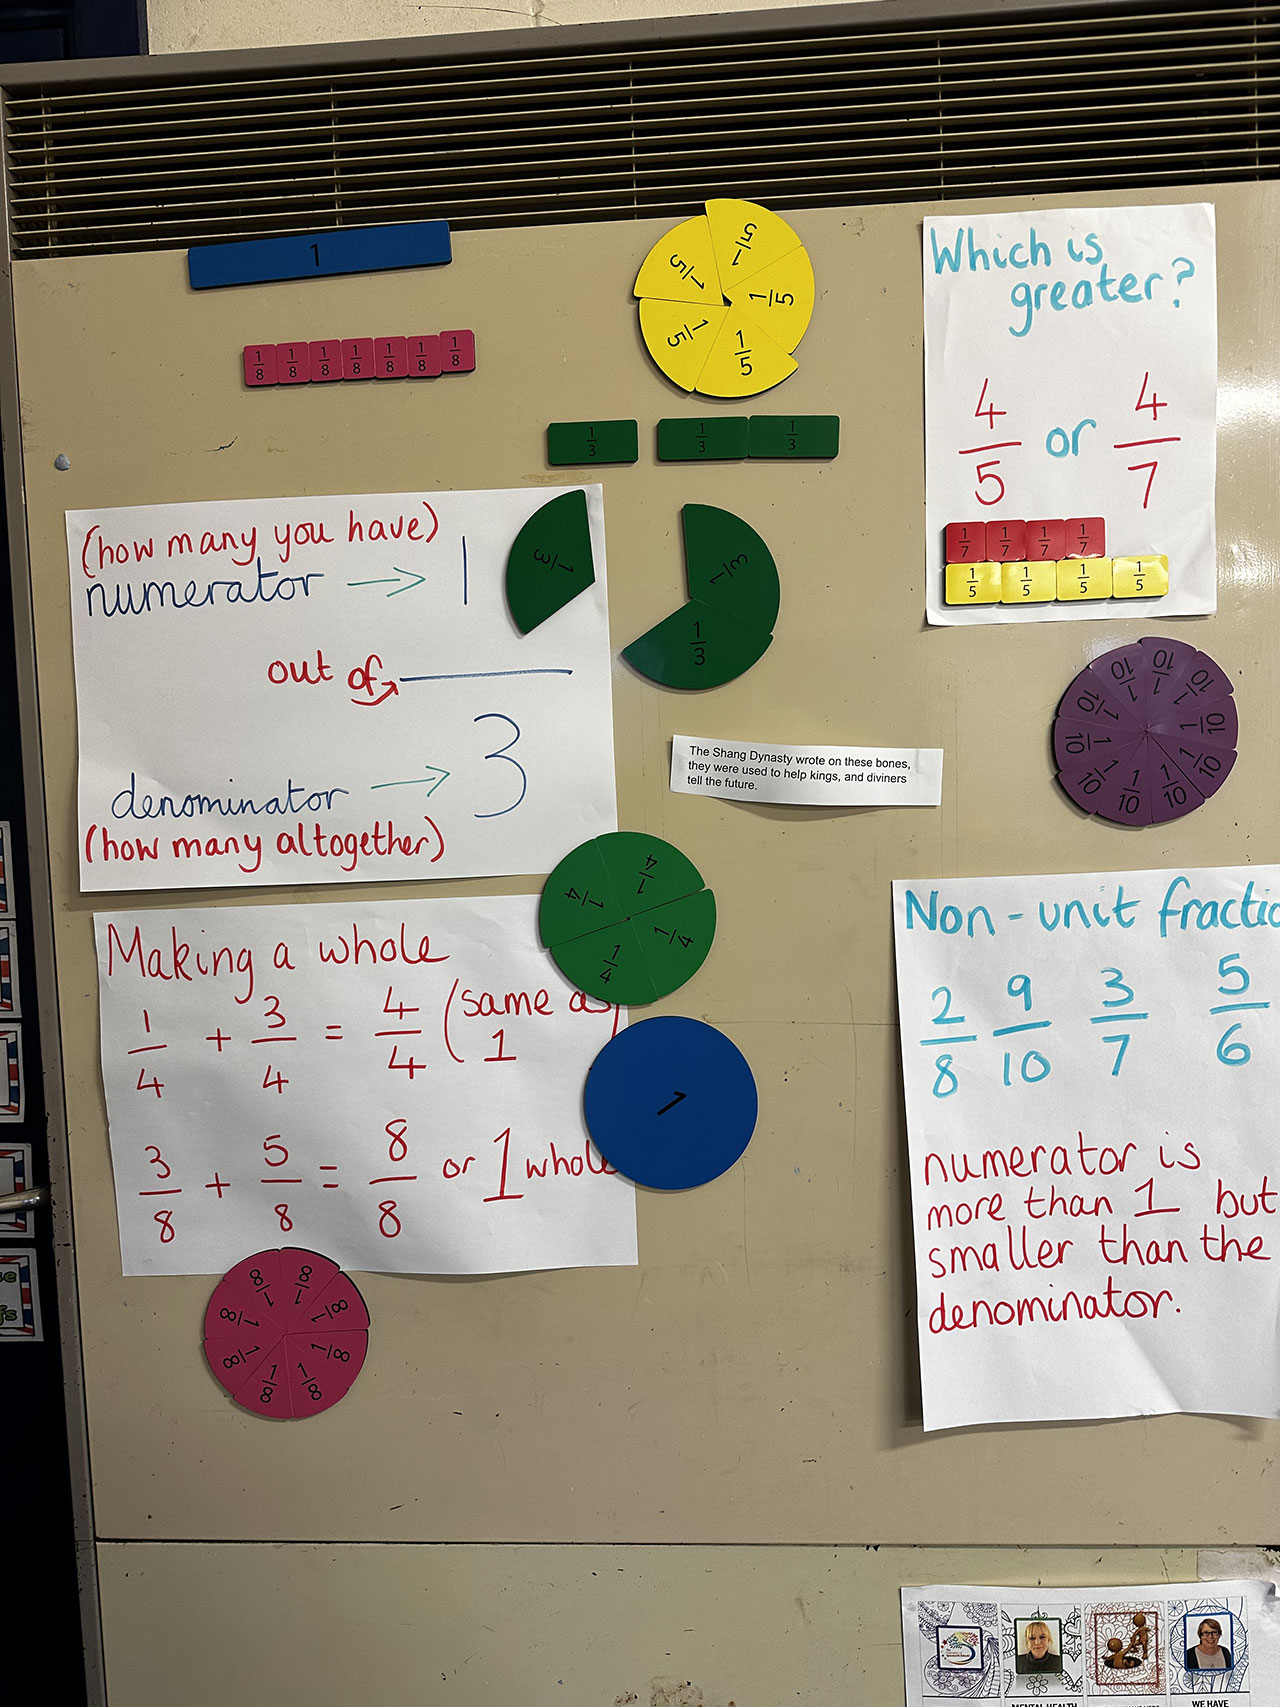 1
1/8 1/8 1/8 1/8 1/8 1/8 1/8
1/5 1/5 1/5 1/5 1/5
1/3 1/3 1/3
Which is
greater?
4/5 or 4/7
1/7 1/7 1/7 1/7
1/5 1/5 1/5 1/5
(how many you have)
numerator → 1
out of
denominator → 3
(how many altogether)
1/3
1/3
1/3
The Shang Dynasty wrote on these bones,
they were used to help kings, and diviners
tell the future.
1/10 1/10 1/10 1/10 1/10 1/10 1/10 1/10 1/10 1/10
1/4 1/4 1/4 1/4
Making a whole
1/4 + 3/4 = 4/4 (same as
1)
3/8 + 5/8 = 8/8 or 1 whole
1
1/8 1/8 1/8 1/8 1/8 1/8 1/8 1/8
Non-unit fractio
2/8 9/10 3/7 5/6
numerator is
more than 1 but
smaller than the
denominator.
MENTAL HEALTH
WE HAVE